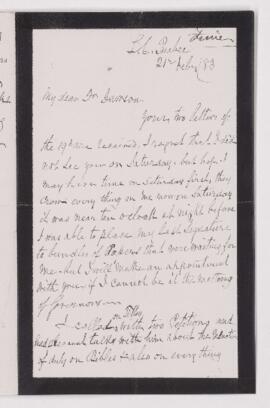 21st Feby 83
My dear Dr Dawson
Your two letters of
the 19th are received, I regret that I did
not see you on Saturday, but hope I
may have time on Saturday first, they
crowd every thing on me now on Saturday
it was near ten o'clock at night before
I was able to place my last signature
to bundles of Papers that were waiting for
me - but I will make an appointment
with you if I cannot be at the meeting
of Governors -
I called on Tilley with two Petitions and
had a talk with him about the
of duty on Bibles &also on every thing